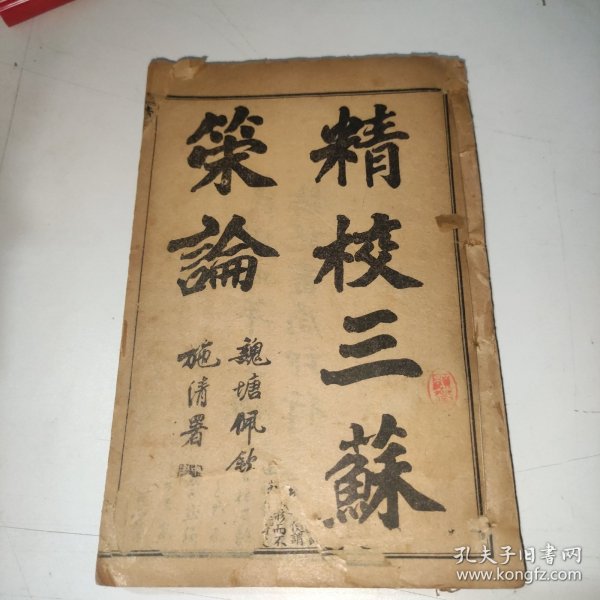 精校三蘇
策論
魏塘佩欽
施清署
孔夫子旧书网
www.kongfz.com